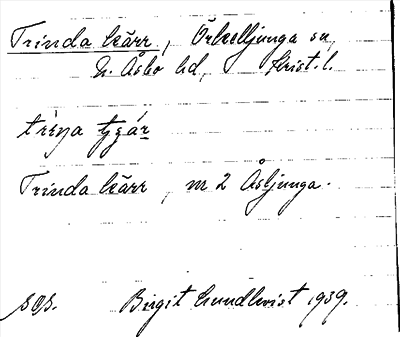 Trinda kärr, Örkelljunga sn,
N. Åsbo hd, Krist. l.
Trinda kärr, m 2 Åsljunga.
sgs. Birgit Lundkvist 1939.